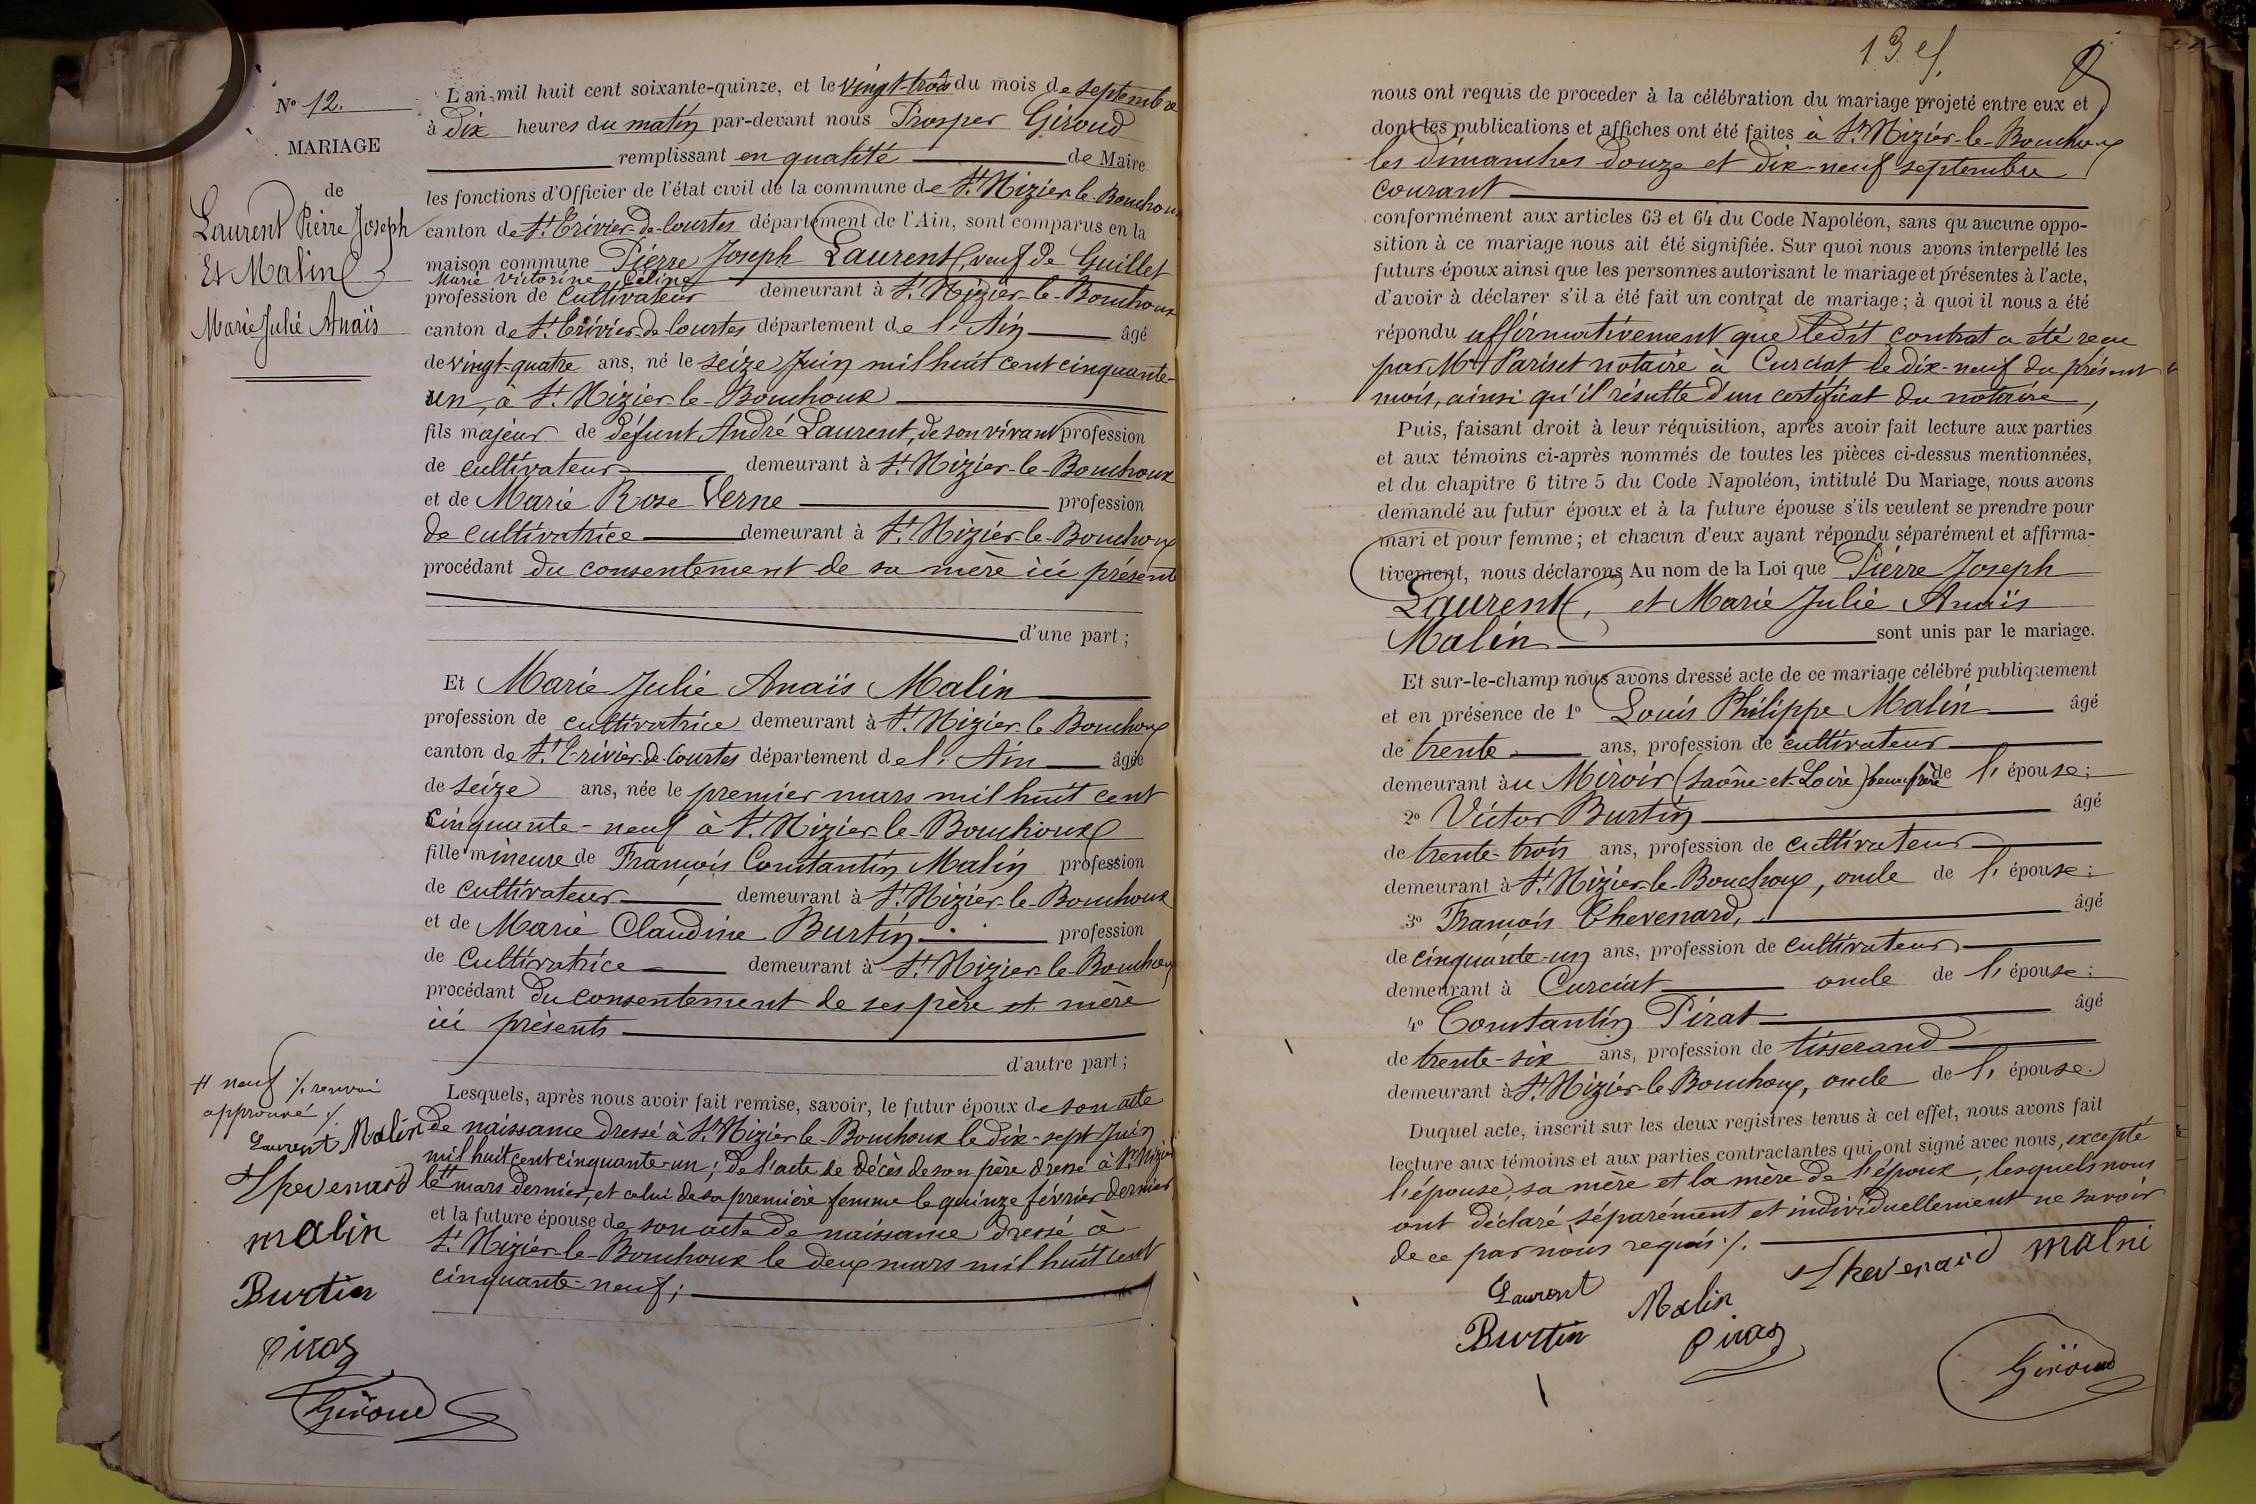 N° 12.
MARIAGE
de
Laurent Pierre Joseph
Et Malin
Marie Julie Anaïs
L'an mil huit cent soixante-quinze, et le vingt-trois du mois de septembre
à dix heures du matin par-devant nous Prosper Giroud
remplissant en qualité de Maire
les fonctions d'Officier de l'état civil de la commune de St. Nizier-le-Bouchoux
canton de St. Trivier-de-Courtes département de l'Ain, sont comparus en la
maison commune Pierre Joseph Laurent, veuf de Guillet
Marie Victorine Céline
profession de Cultivateur demeurant à St. Nizier-le-Bouchoux
canton de St. Trivier-de-Courtes département de l'Ain âgé
de vingt-quatre ans, né le seize Juin mil huit cent cinquante-
un, à St. Nizier-le-Bouchoux
fils majeur de défunt André Laurent, de son vivant profession
de cultivateur demeurant à St. Nizier-le-Bouchoux
et de Marie Rose Verne profession
de cultivatrice demeurant à St. Nizier-le-Bouchoux
procédant du consentement de sa mère ici présente
d'une part ;
Et Marie Julie Anaïs Malin
profession de cultivatrice demeurant à St. Nizier-le-Bouchoux
canton de St. Trivier-de-Courtes département de l'Ain âgée
de seize ans, née le premier mars mil huit cent
cinquante-neuf à St. Nizier-le-Bouchoux
fille mineure de François Constantin Malin profession
de cultivateur demeurant à St. Nizier-le-Bouchoux
et de Marie Claudine Burtin profession
de Cultivatrice demeurant à St. Nizier-le-Bouchoux
procédant du consentement de ses père et mère
ici présents
d'autre part ;
Lesquels, après nous avoir fait remise, savoir, le futur époux de son acte
de naissance dressé à St. Nizier-le-Bouchoux le dix-sept Juin
mil huit cent cinquante-un ; de l'acte de décès de son père dressé à St. Nizier
le # mars dernier, et celui de sa première femme le quinze février dernier
et la future épouse de son acte de naissance dressé à
St. Nizier-le-Bouchoux le deux mars mil huit cent
cinquante-neuf ;
# neuf ./. renvoi
approuvé ./.
Laurent Malin
Thevenard
malin
Burtin
Piraz
Giroud
13 ef.
nous ont requis de proceder à la célébration du mariage projeté entre eux et
dont les publications et affiches ont été faites à St. Nizier-le-Bouchoux
les dimanches douze et dix-neuf septembre
courant
conformément aux articles 63 et 64 du Code Napoléon, sans qu'aucune oppo-
sition à ce mariage nous ait été signifiée. Sur quoi nous avons interpellé les
futurs époux ainsi que les personnes autorisant le mariage et présentes à l'acte,
d'avoir à déclarer s'il a été fait un contrat de mariage ; à quoi il nous a été
répondu affirmativement que ledit contrat a été reçu
par Me Pariset notaire à Curciat le dix-neuf du présent
mois, ainsi qu'il résulte d'un certificat du notaire,
Puis, faisant droit à leur réquisition, après avoir fait lecture aux parties
et aux témoins ci-après nommés de toutes les pièces ci-dessus mentionnées,
et du chapitre 6 titre 5 du Code Napoléon, intitulé Du Mariage, nous avons
demandé au futur époux et à la future épouse s'ils veulent se prendre pour
mari et pour femme ; et chacun d'eux ayant répondu séparément et affirma-
tivement, nous déclarons Au nom de la Loi que Pierre Joseph
Laurent, et Marie Julie Anaïs
Malin sont unis par le mariage.
Et sur-le-champ nous avons dressé acte de ce mariage célébré publiquement
et en présence de 1° Louis Philippe Malin âgé
de trente ans, profession de cultivateur
demeurant au Miroir (Saône-et-Loire) beau frère de l'épouse ;
2° Victor Burtin âgé
de trente-trois ans, profession de cultivateur
demeurant à St. Nizier-le-Bouchoux, oncle de l'épouse ;
3° François Thevenard, âgé
de cinquante-un ans, profession de cultivateur
demeurant à Curciat oncle de l'épouse ;
4° Constantin Pirat âgé
de trente-six ans, profession de tisserand
demeurant à St. Nizier-le-Bouchoux, oncle de l'épouse.
Duquel acte, inscrit sur les deux registres tenus à cet effet, nous avons fait
lecture aux témoins et aux parties contractantes qui ont signé avec nous, excepté
l'épouse, sa mère et la mère de l'époux, lesquels nous
ont déclaré séparément et individuellement ne savoir
de ce par nous requis ./.
Laurent Malin Thevenard malni
Burtin Piraz Giroud